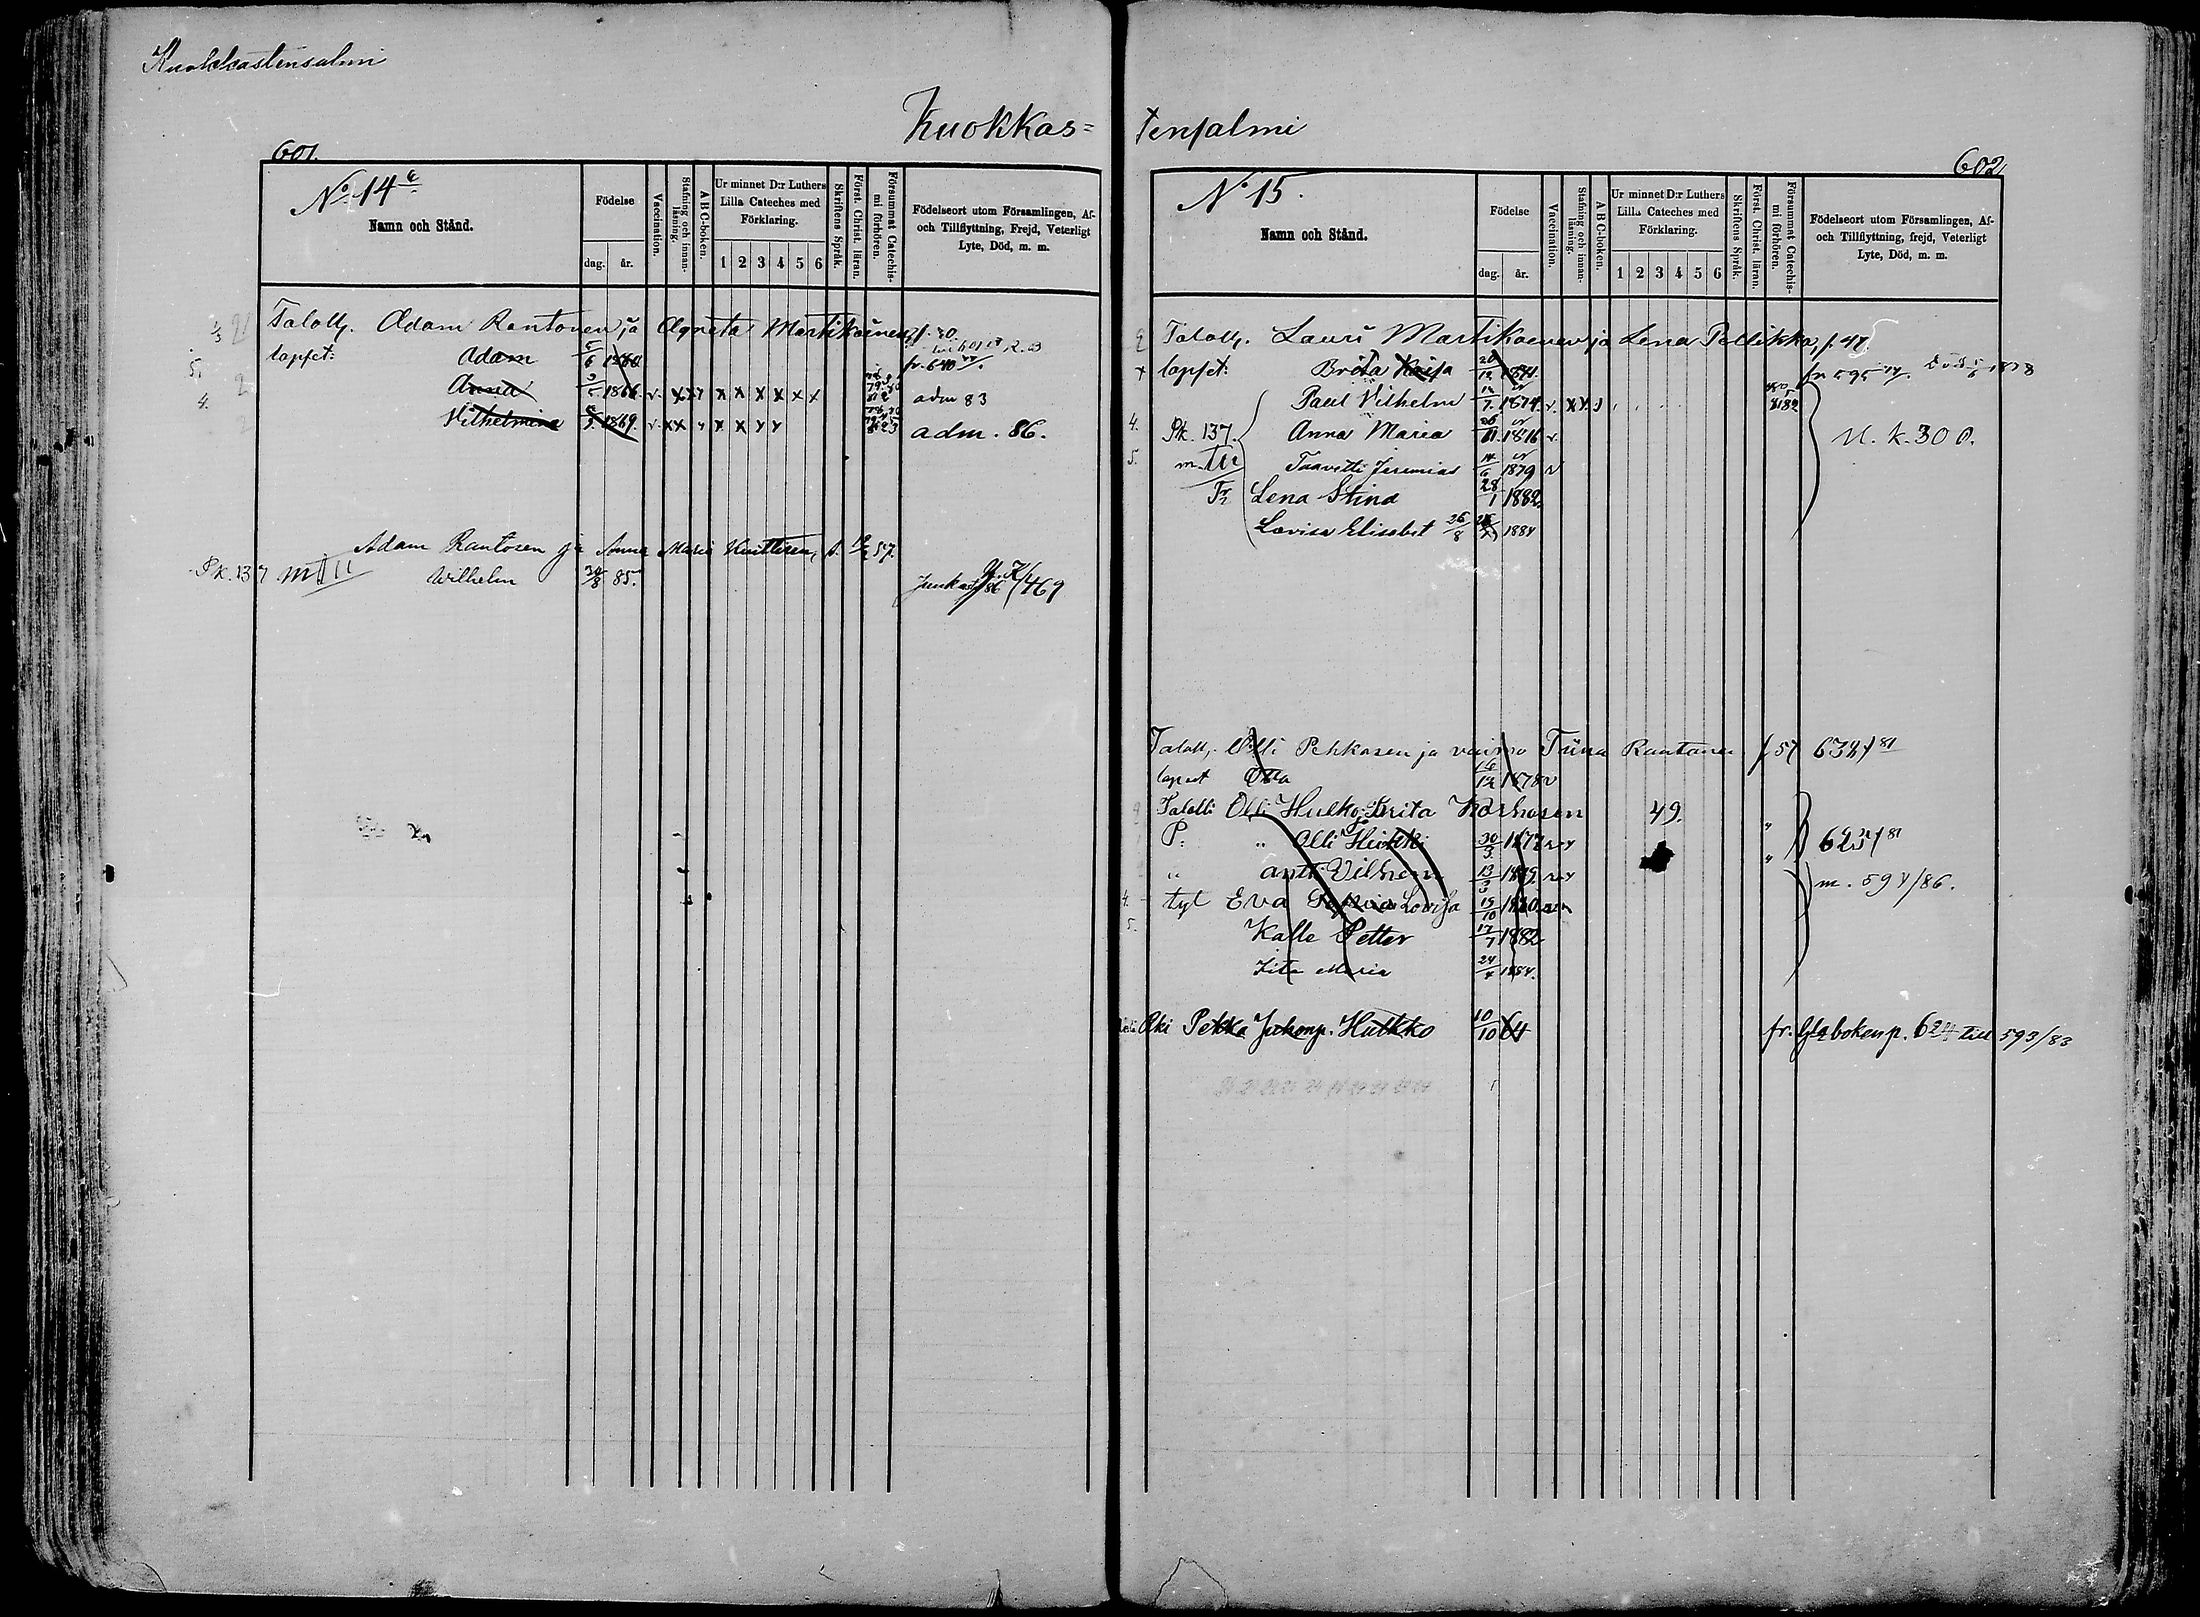 Kuokkastensalmi
Kuokkas=
601.
No 14
Namn och Stånd.
Födelse
dag. år.
Vaccination.
Stafning och innanläsning.
A B C-boken.
Ur minnet D:r Luthers Lilla Cateches med Förklaring.
1 2 3 4 5 6
Skriftens Språk.
Först. Christ. läran.
Försummat Catechismi förhören.
Födelseort utom Församlingen, Af- och Tillflyttning, Frejd, Veterligt Lyte, Död, m. m.
Taloll. Adam Rantonen ja Agneta Martikainen f. 30.
lapset: Adam 1860 fr. 640
Anna 1866 v. adm 83
Vilhelmina 1869 v. adm. 86.
Adam Rantosen ja Anna Maria 57.
Pk. 137 m III Wilhelm 30/8 85. 469
tensalmi
602
No 15.
Namn och Stånd.
Födelse
dag. år.
Vaccination.
Stafning och innanläsning.
A B C-boken.
Ur minnet D:r Luthers Lilla Cateches med Förklaring.
1 2 3 4 5 6
Skriftens Språk.
Först. Christ. läran.
Försummat Catechismi förhören.
Födelseort utom Församlingen, Af- och Tillflyttning, frejd, Veterligt Lyte, Död, m. m.
Taloll. Lauri Martikainen ja Lena Pellikka, f. 47
lapset: Brita Kaisa 1871. fr 595 Död 1878
Paul Vilhelm 1874 v.
Pk. 137. Anna Maria 1876 v. U. k. 300.
m. III Taavetti Jeremias 14/6 1879 v
Lena Stina 28/1 1882.
Lovisa Elisabet 26/8 1884
Taloll. Olli Pekkasen ja vaimo Tiina Rautanen f 57 632/81
lapset Otto 16/12 1878 v
Talolli Olli Hulko, Brita Korhosen 49.
P: " Olli Heikki 30/3 1877 625/81
" Antti Vilhem 13/3 1879 m. 594/86.
tyt Eva Lovisa 19/10 1880
Kalle Petter 17/7 1882
Maria 24/4 1884.
Pekka Juhonp. Hulkko 10/10 64 fr. Gla boken p. 624 till 593/83